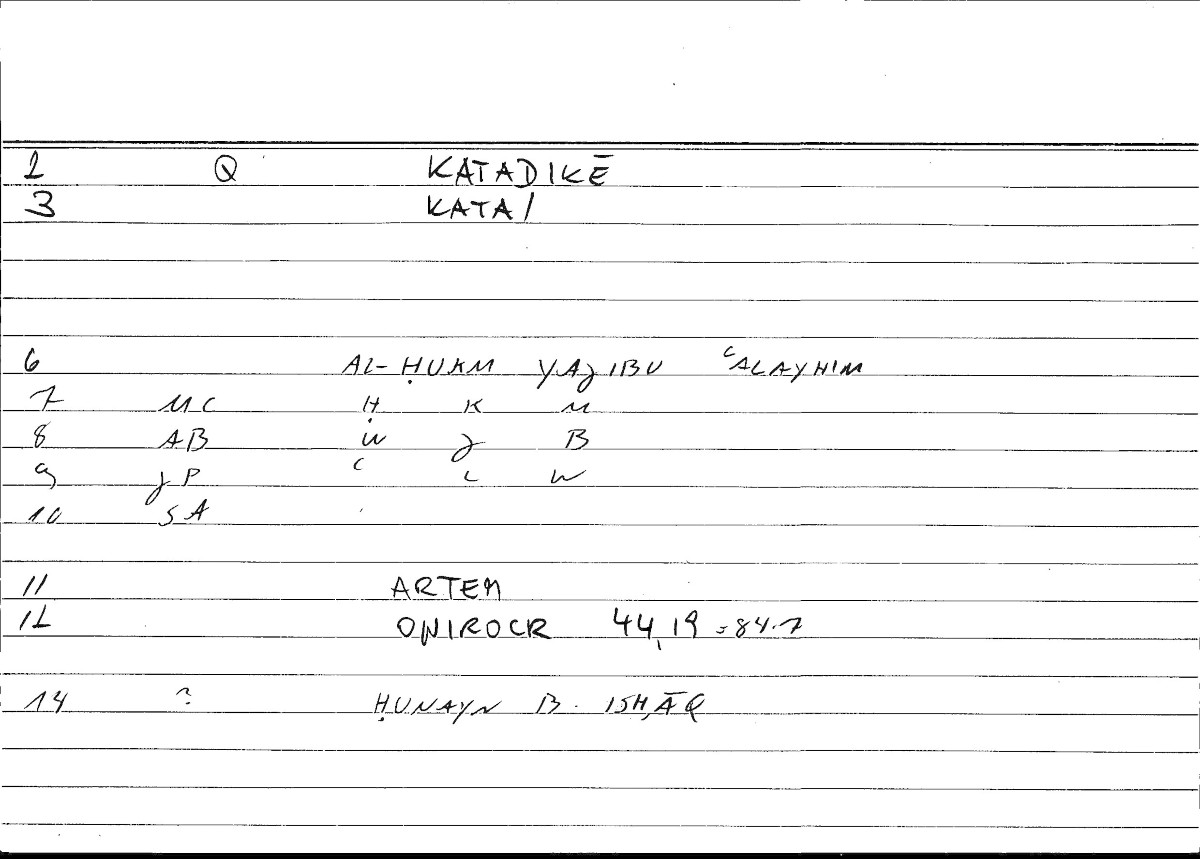 2 Q KATADIKĒ
3 KATA/
6 AL-ḤUKM YAJIBU ʿALAYHIM
7 MC Ḥ K M
8 AB W J B
9 JP ʿ L W
10 SA
11 ARTEM
12 ONIROCR 44,19 = 84.7
14 ? ḤUNAYN B. ISḤĀQ